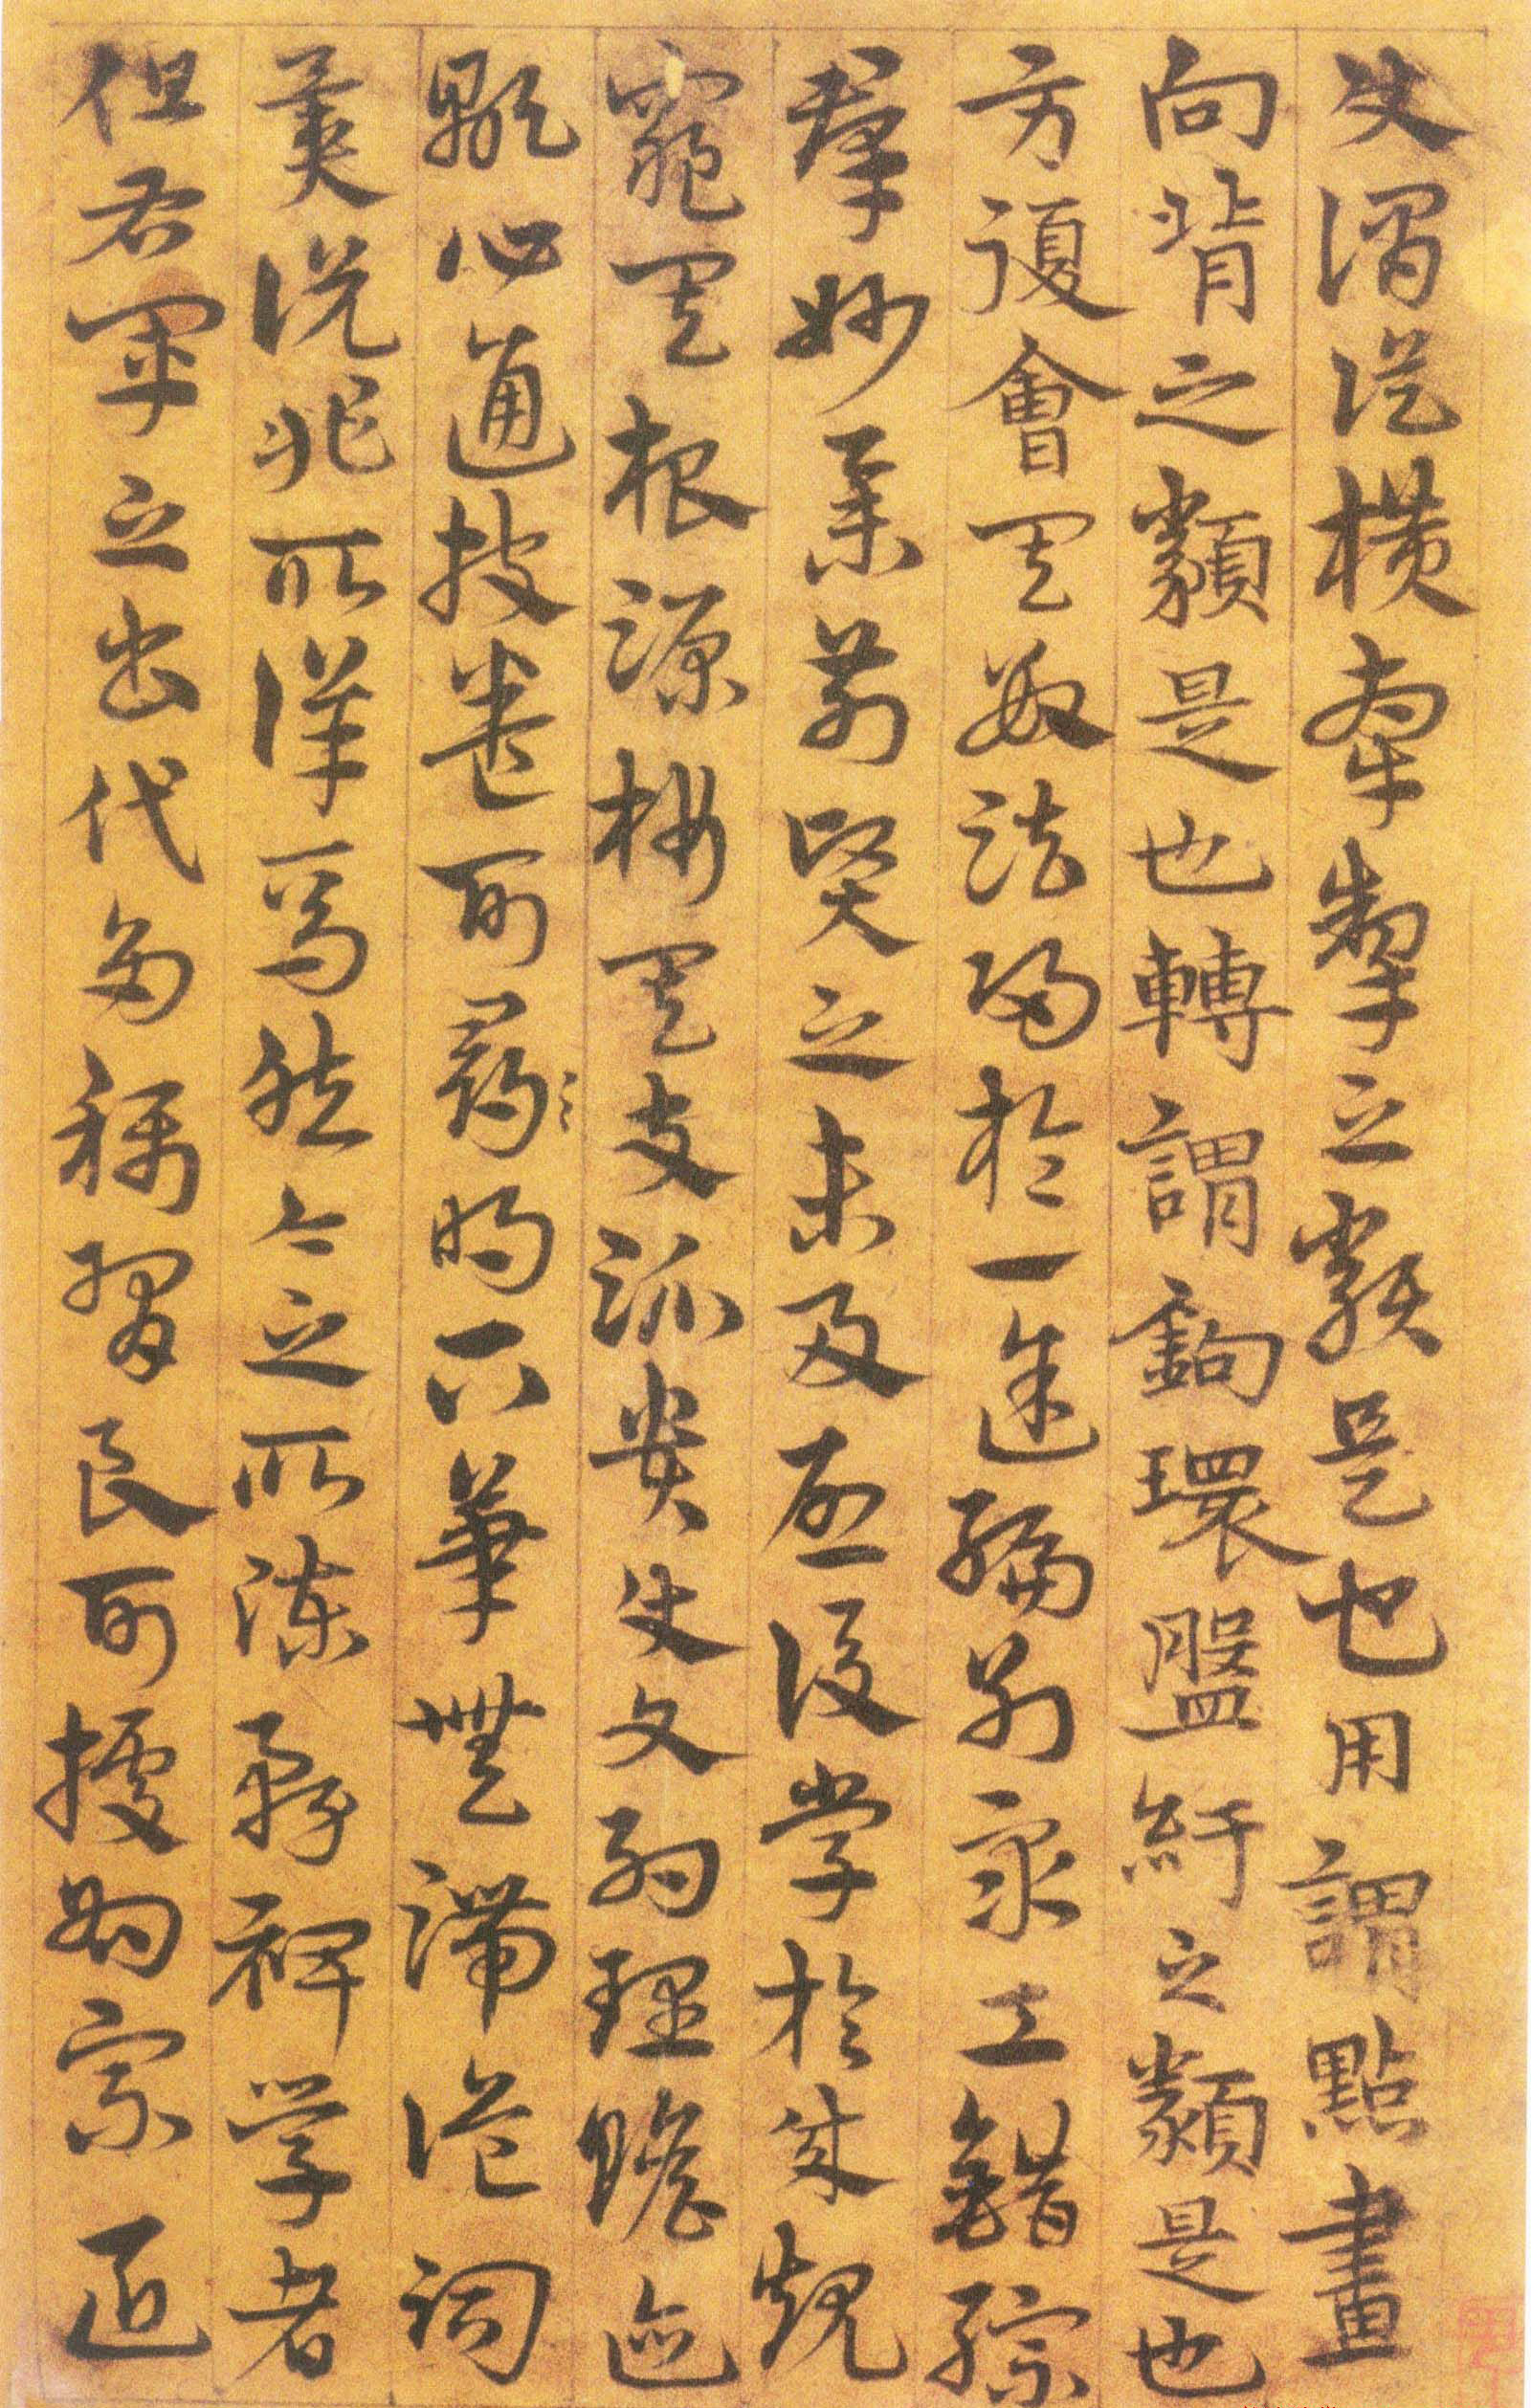 使謂從橫牽掣之類是也用謂點畫
向背之類是也轉謂鉤環盤紆之類是也
方復會其數法歸於一途編列衆工錯綜
群妙舉前賢之未及啓後學於成規
窺其根源析其支派貴使文約理贍迹
顯心通披卷可尋明下筆無滯詭詞
異說非所詳焉然今之所陳務裨學者
但右軍之書代多稱習良可據為宗匠